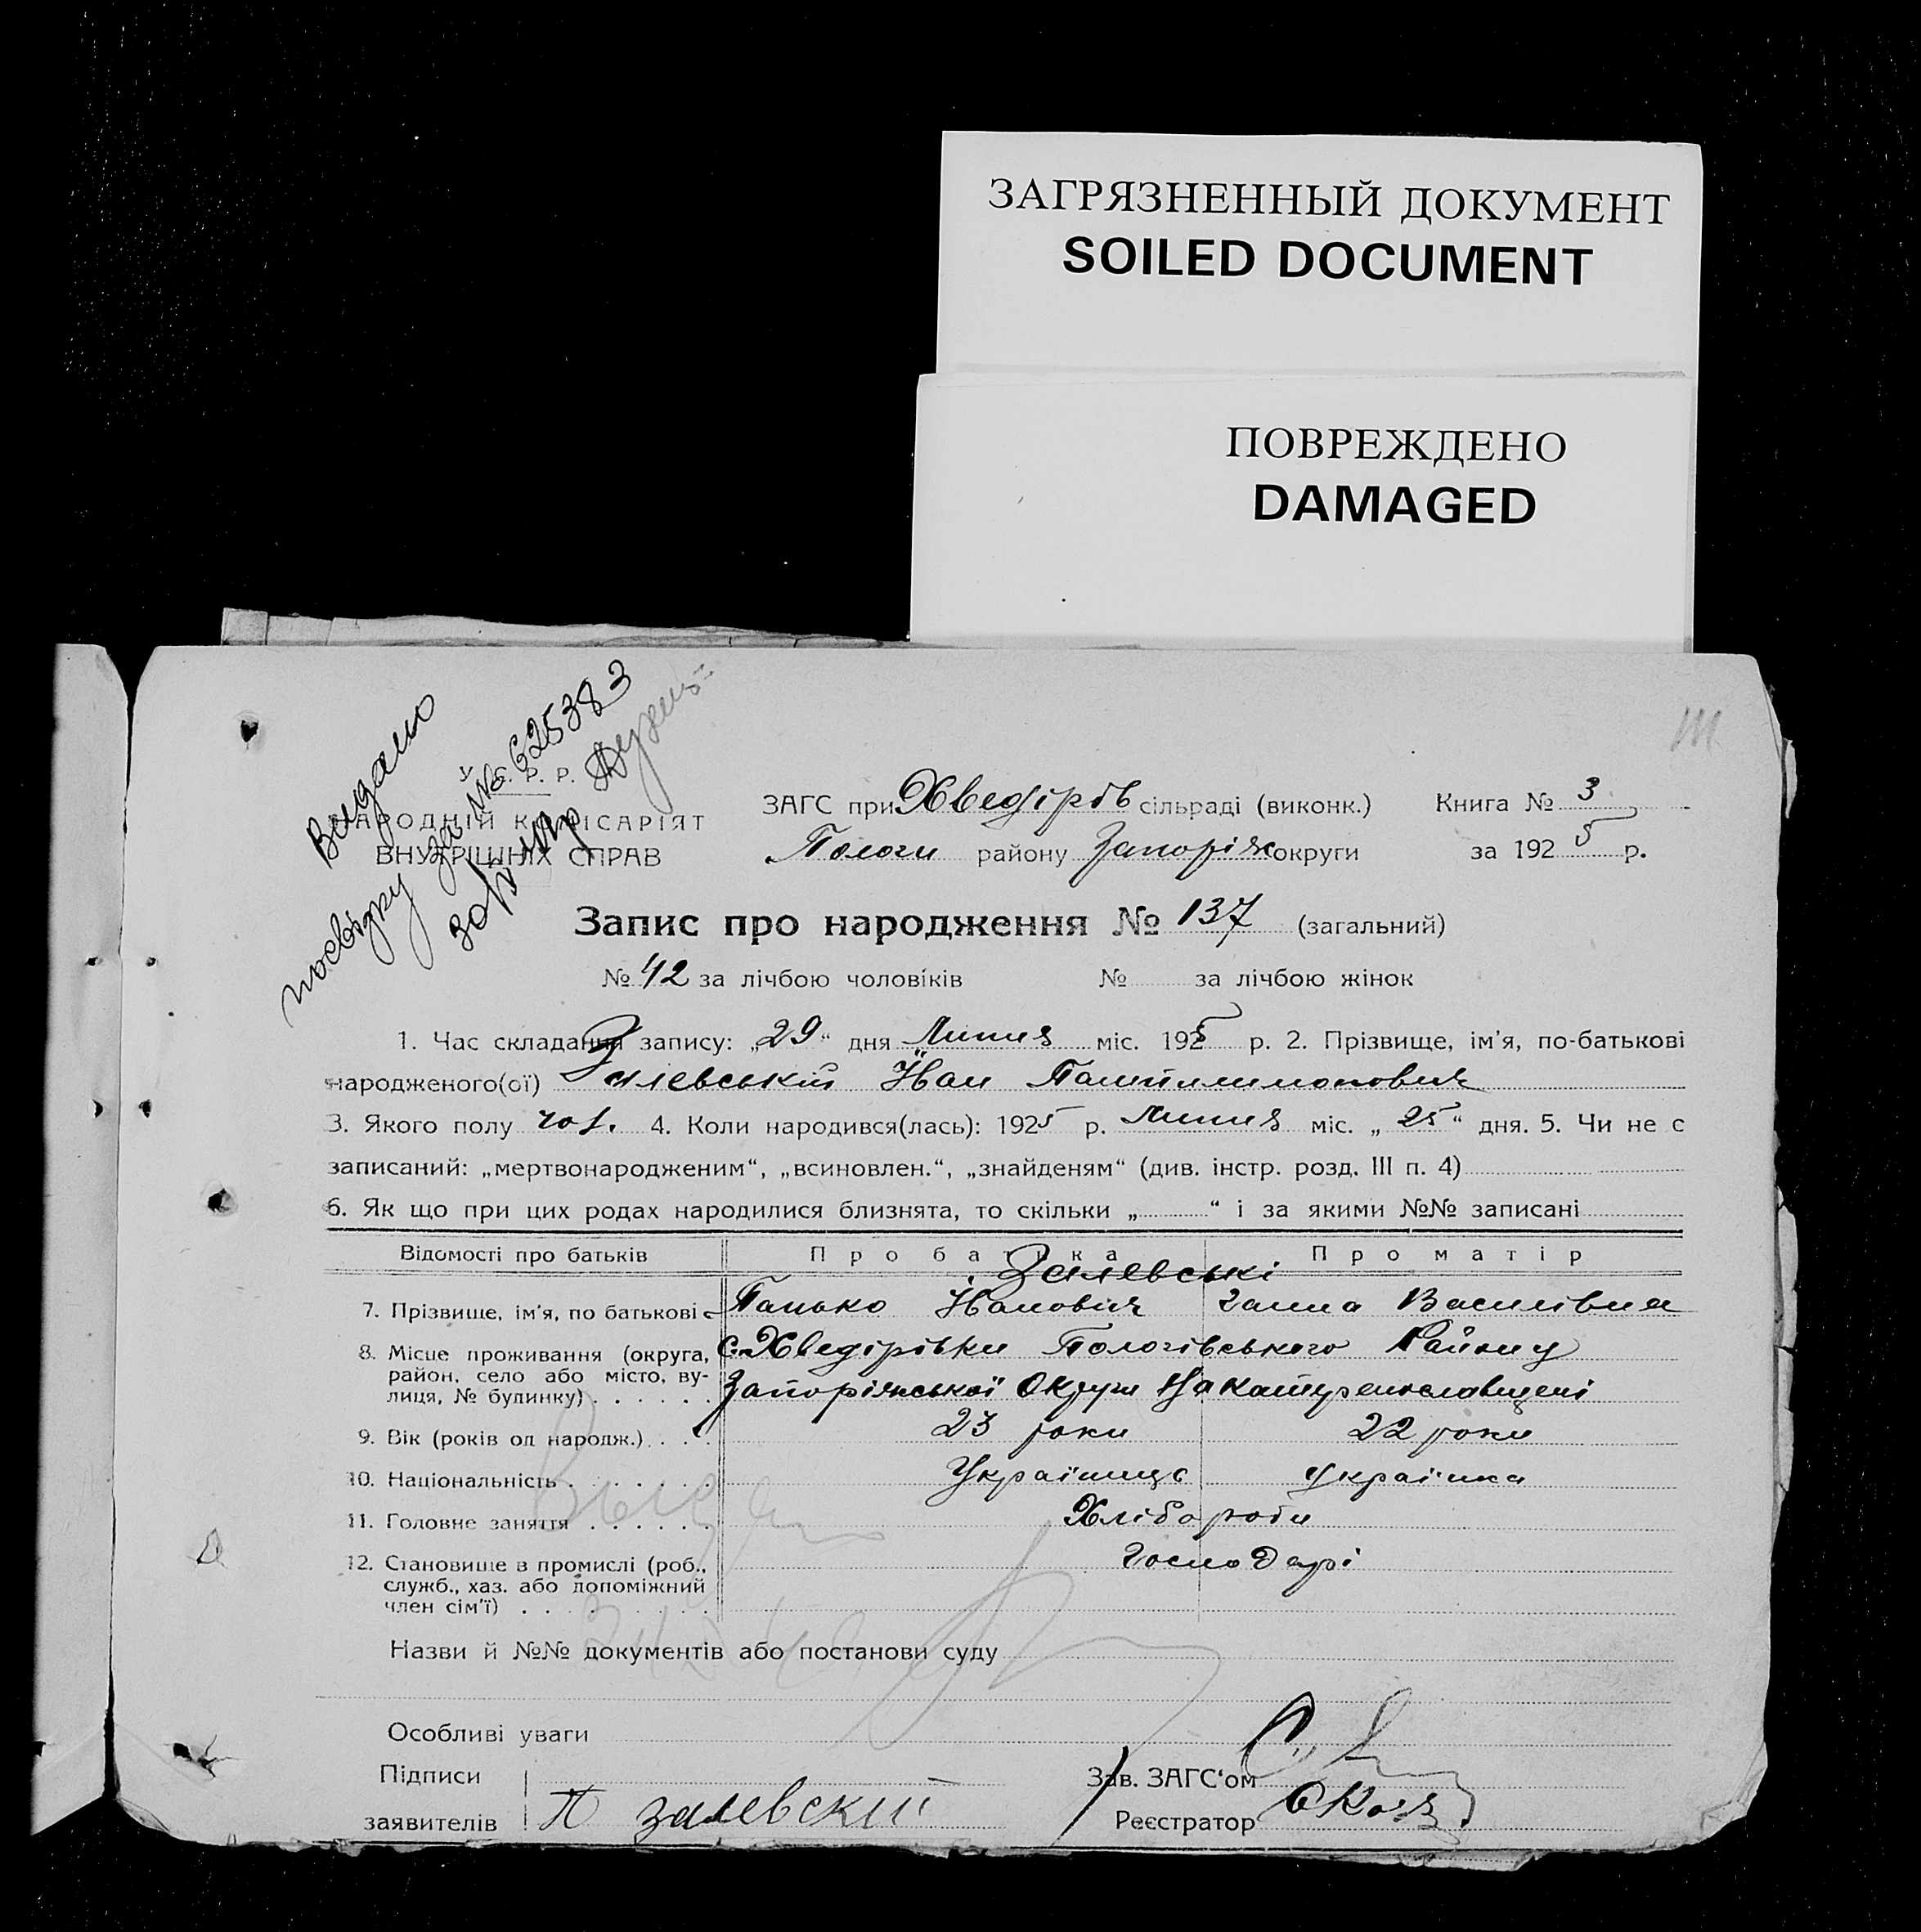 ЗАГРЯЗНЕННЫЙ ДОКУМЕНТ
SOILED DOCUMENT
ПОВРЕЖДЕНО
DAMAGED
Видано
посвідку за № 625383
У. С. Р. Р.
НАРОДНІЙ КОМІСАРІЯТ
ВНУТРІШНІХ СПРАВ
ЗАГС при Хведірів сільраді (виконк.) Книга № 3
Пологи району Запоріж округи за 1925 р.
Запис про народження № 137 (загальний)
№ 42 за лічбою чоловіків № за лічбою жінок
1. Час складання запису: „29“ дня Липня міс. 1925 р. 2. Прізвище, ім’я, по-батькові
народженого(ої) Залевський Йван Пантилимонович
3. Якого полу чол. 4. Коли народився(лась): 1925 р. Липня міс. „25“ дня. 5. Чи не є
записаний: „мертвонародженим“, „всиновлен.“, „знайденям“ (див. інстр. розд. III п. 4)
6. Як що при цих родах народилися близнята, то скільки „ “ і за якими №№ записані
Відомості про батьків Про батька Про матір
Залевські
7. Прізвище, ім’я, по батькові Панько Йванович Ганна Василівна
8. Місце проживання (округа, с. Хведірівки Пологівського Району
район, село або місто, ву-
лиця, № будинку) Запоріжської Округи на Катеренославщені
9. Вік (років од народж.) 23 роки 22 роки
10. Національність Українець Українка
11. Головне заняття Хлібороби
12. Становище в промислі (роб., Господарі
служб., хаз. або допоміжний
член сім’ї)
Назви й №№ документів або постанови суду
Особливі уваги
Підписи Зав. ЗАГС‘ом
заявителів П Залевский Реєстратор